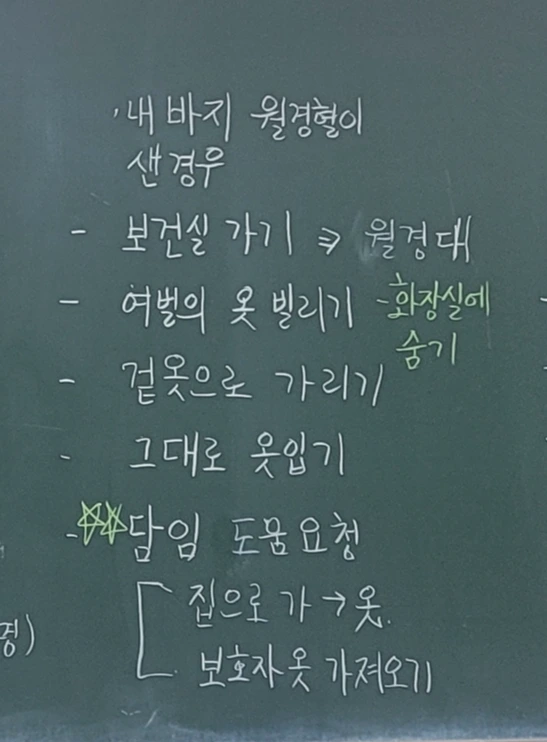 · 내 바지 월경혈이
샌 경우
- 보건실 가기 ⇒ 월경대
- 여벌의 옷 빌리기 - 화장실에
숨기
- 겉옷으로 가리기
- 그대로 옷입기
- ☆☆ 담임 도움요청
집으로 가 → 옷.
보호자 옷 가져오기